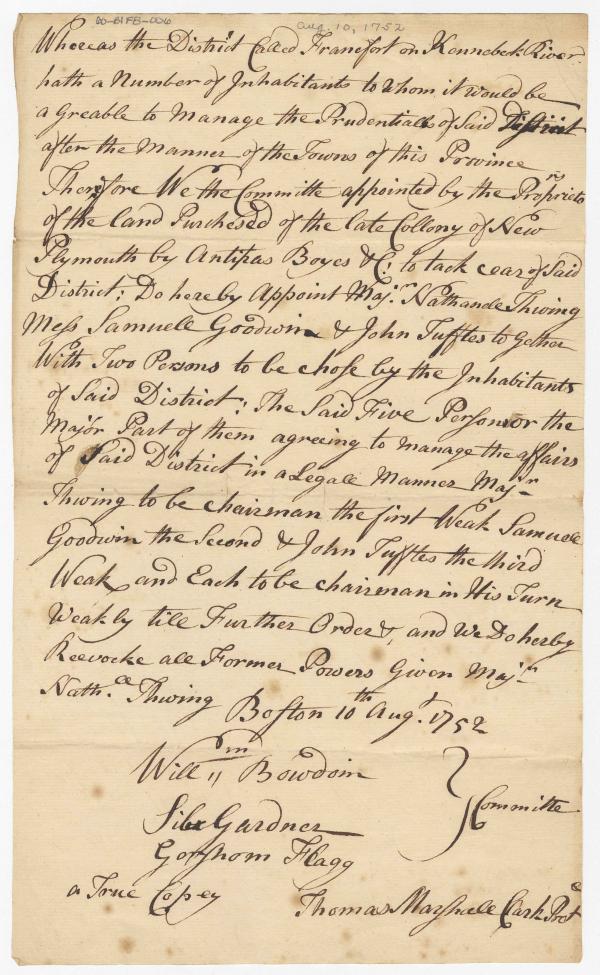 00-B1FB-006 Aug. 10, 1752
Whereas the District Called Francfort on Kennebeck River
hath a Number of Inhabitants to whom it would be
a Greable to Manage the Prudentialls of Said District
after the Manner of the Towns of this Province
Therefore We the Committe appointed by the Proprietors
of the Land Purchesed of the late Collony of New
Plymouth by Antipas Boyes &C: to tack cear of Said
District: Do hereby Appoint Majr. Nathanele Thwing
Mess Samuell Goodwin & John Tufftes to Gether
With Two Persons to be chose by the Inhabitants
of Said District: The Said Five Persons or the
Major Part of them agreeing to manage the affairs
of Said District in a Legall Manner Majr
Thwing to be chairman the first Weak Samuell
Goodwin the Second & John Tufftes the third
Weak and Each to be chairman in His Turn
Weakly till Further Orders, and We Do herby
Reevocke all Former Powers Given Majr
Nathll Thwing
Boston 10th Augt 1752
Willm Bowdoin
Silr Gardner
Committe
Gorshom Flagg
a True Copey
Thomas Marshall Clark Proe